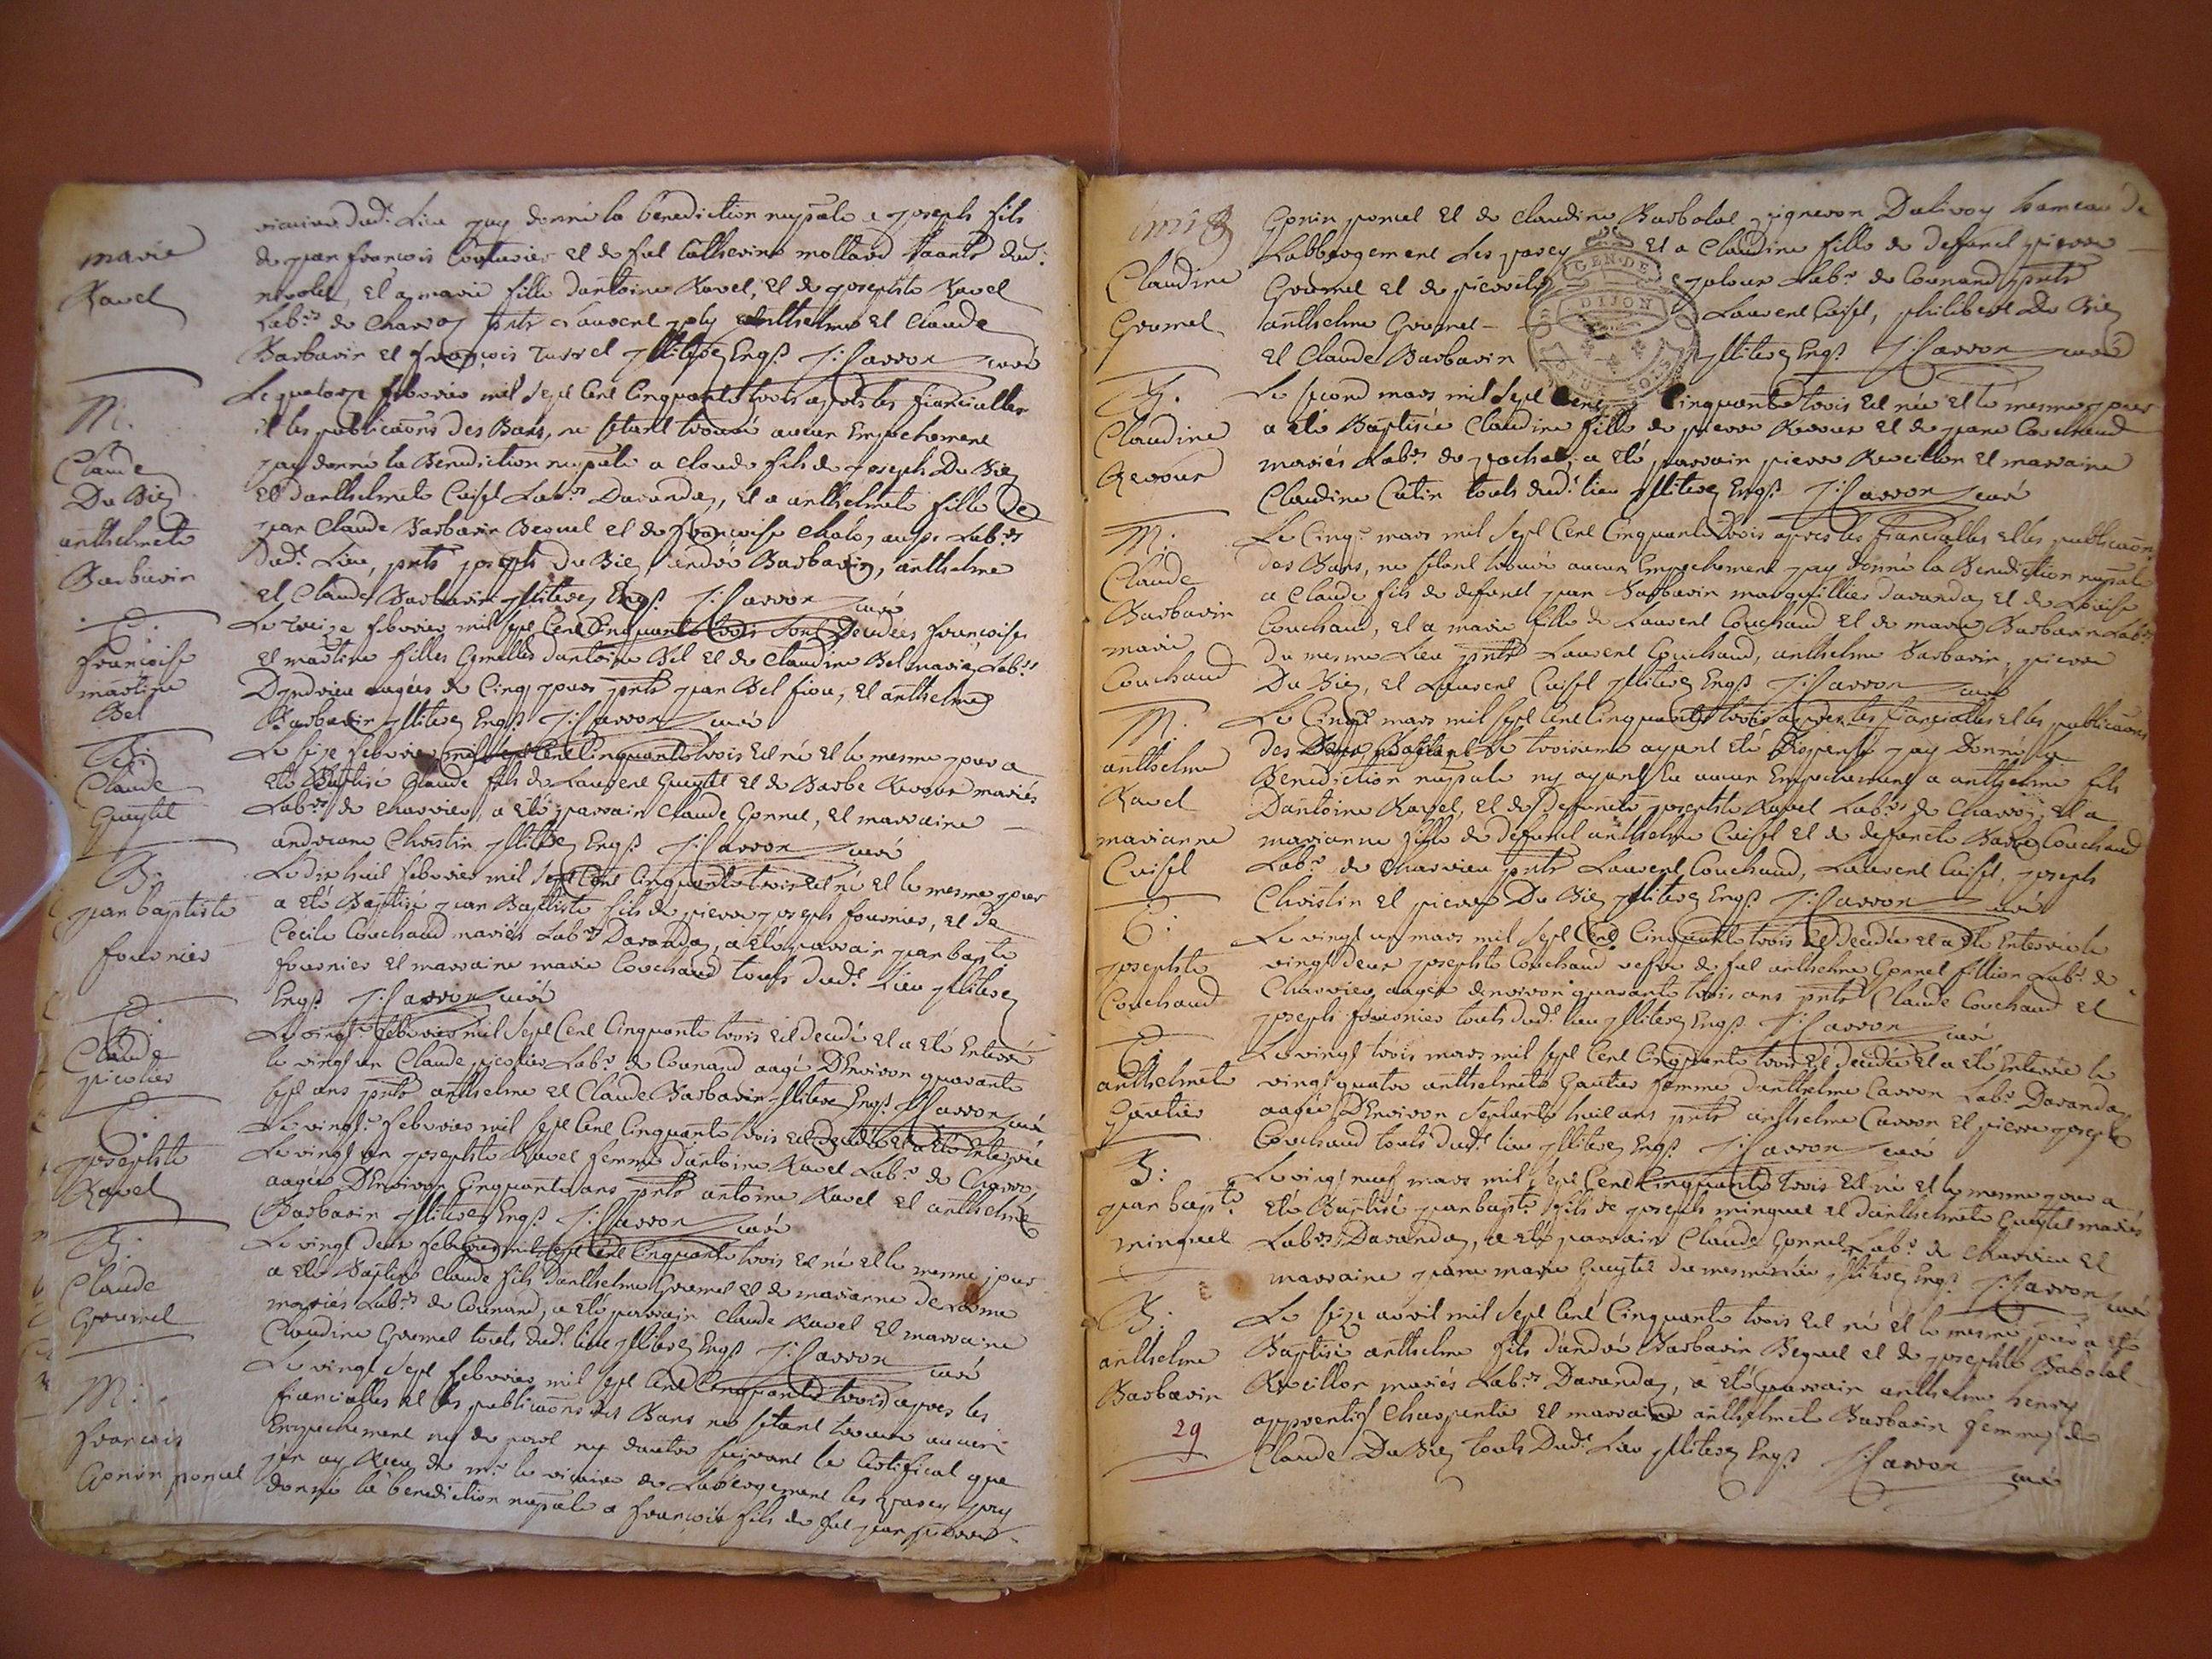 marie
Ravel
dud. Lieu jay donné la benediction nuptiale a joseph fils
de jean francois Couturier et de fut Catherine mollard dud.
et a marie fille dantoine Ravel, et de josephte Ravel
Lab.rs de Charvoz pnts Laurent anthelme et Claude
Barbarin et françois Illiterez Engs. J: Carron curé
M.
Claude
Du Biez
anthelmete
Barbarin
Le quatorze febvrier mil sept Cent Cinquante trois apres les fiancialles
et les publicaons des Bans, ne sétant trouvé aucun Empechement
jay donné la Benediction nuptiale a Claude fils de joseph Du Biez
et danthelmete Cuisel Lab.rs Davandaz, et a anthelmete fille de
jean Claude Barbarin Bequet et de françoise aussi Lab.rs
dud. Lieu, pnts joseph Du Biez, andré Barbarin, anthelme
et Claude Barbarin Illiterez Engs. J: Carron curé
C.
françoise
martine
Bel
Le treize febvrier mil sept Cent Cinquante trois sont Decedées françoise
et martine filles Gemelles dantoine Bel et de Claudine Bel mariez Lab.rs
aagées de Cinq jours pnts jean Bel fiou, et anthelme
Barbarin Illiterez Engs. J: Carron curé
B.
Claude
Gueytel
Le seize febvrier mil sept Cent Cinquante trois Est né et le mesme jour a
eté Baptisé Claude fils de Laurent Gueytel et de Barbe Revour mariés
Lab.rs de Charvieu, a eté parrain Claude Gonnel, et marraine
andreane Christin Illiterez Engs. J: Carron curé
B.
jean baptiste
fournier
Le dix huit febvrier mil sept Cent Cinquante trois Est né et le mesme jour
a eté Baptisé jean Baptiste fils de pierre joseph fournier, et de
Cecile Couchaud mariés Lab.rs Davandaz, a eté parrain jean bapte
fournier et marraine marie Couchaud touts dud. Lieu Illiterez
Engs. J: Carron curé
C.
Claude
picolier
Le vingt febvrier mil sept Cent Cinquante trois Est decedé et a eté Enterré
le vingt un Claude picolier Lab.r de Counand aagé DEnviron quarante
sept ans pnts anthelme et Claude Barbarin Illiterez Engs. J: Carron curé
C.
josephte
Ravel
Le vingt febvrier mil sept Cent Cinquante trois est decedée et a eté Enterrée
Le vingt un josephte Ravel femme dantoine Ravel Lab.r de Charvoz
aagée DEnviron Cinquante ans pnts antoine Ravel et anthelme
Barbarin Illiterez Engs. J: Carron curé
B.
Claude
Gounel
Le vingt deux febvrier mil sept Cent Cinquante trois Est né et le mesme jour
a eté Baptisé Claude fils danthelme Gounel et de marianne
mariés Lab.rs de Counand, a eté parrain Claude Ravel et marraine
Claudine Gounel touts dud. lieu Illiterez Engs. J: Carron curé
M:
francois
Gonin ponut
Le vingt sept febvrier mil sept Cent Cinquante trois apres les
fiancialles et les publicaons des Bans ne sétant trouvé aucun
Empechement ny de part ny dautre suivant le Certificat que
jen ay Receu de mr. le vicaire de Labergement les jay
donné la benediction nuptiale a françois fils de fut jean pierre
Claudine
Gounel
Gonin ponut et de Claudine vigneron hameau de
Labbergement Les et a Claudine fille de defunct pierre
Gounel et de Lab.r de Counand pnts
anthelme Gounel Laurent Cuisel, philibert Du Biez
et Claude Barbarin Illiterez Engs. J: Carron curé
GEN. DE
DIJON
DEUX SOLS
B.
Claudine
Revour
Le second mars mil sept Cent Cinquante trois Est née et le mesme jour
a eté Baptisée Claudine fille de pierre Revour et de jeane Couchaud
mariés Lab.rs de a eté parrain pierre Reveillon et marraine
Claudine Catin touts dud. lieu Illiterez Engs. J: Carron curé
M:
Claude
Barbarin
marie
Couchaud
Le Cinq mars mil sept Cent Cinquante trois apres les fiancialles et les publicaons
des Bans, ne sétant trouvé aucun Empechement jay donné la Benediction nuptiale
a Claude fils de defunct jean Barbarin marguillier davandaz et de Louise
Couchaud, et a marie fille de Laurent Couchaud et de marie Barbarin Lab.rs
du mesme Lieu pnts Laurent Couchaud, anthelme Barbarin, pierre
Du Biez, et Laurent Cuisel Illiterez Engs. J: Carron curé
M.
anthelme
Ravel
marianne
Cuisel
Le Cinq mars mil sept Cent Cinquante trois apres les fiancialles et les publicaons
des Bans le troisieme ayant eté Dispensé jay Donné la
Benediction nuptiale ny ayant Eu aucun Empechement a anthelme fils
Dantoine Ravel, et de Defuncte josephte Ravel Lab.rs de Charvoz, et a
marianne fille de defunct anthelme Cuisel et de defuncte Barbe Couchaud
Lab.r de Charvieu pnts Laurent Couchaud, Laurent Cuisel, joseph
Christin et pierre Du Biez Illiterez Engs. J: Carron curé
C.
josephte
Couchaud
Le vingt un mars mil sept Cent Cinquante trois Est decedée et a eté Enterrée le
vingt deux josephte Couchaud vefve de fut anthelme Gonnel fillion Lab.r de
Charvieu aagée denviron quarante trois ans pnts Claude Couchaud et
joseph fournier touts dud. lieu Illiterez Engs. J: Carron curé
C.
anthelmete
Gautier
Le vingt trois mars mil sept Cent Cinquante trois Est decedée et a eté Enterrée le
vingt quatre anthelmete Gautier femme danthelme Carron Lab.r Davandaz
aagée DEnviron septante huit ans pnts anthelme Carron et pierre joseph
Couchaud touts dud. lieu Illiterez Engs. J: Carron curé
B:
jean bapte.
minguet
Le vingt neuf mars mil sept Cent Cinquante trois Est né et le mesme jour a
eté Baptisé jean bapte. fils de joseph minguet et danthelmete Gueytel mariés
Lab.rs Davandaz, a eté parrain Claude Gonnel Lab.r de Charvieu et
marraine jeane marie Gueytel du mesme lieu Illiterez Engs. J: Carron curé
B.
anthelme
Barbarin
29
Le seize avril mil sept Cent Cinquante trois Est né et le mesme jour a eté
Baptisé anthelme fils dandré Barbarin Bequet et de josephte
Reveillon mariés Lab.rs Davandaz, a eté parrain anthelme henry
apprentif Charpentier et marraine anthelmete Barbarin femme de
Claude Du Biez touts Dud. Lieu Illiterez Engs. J: Carron curé